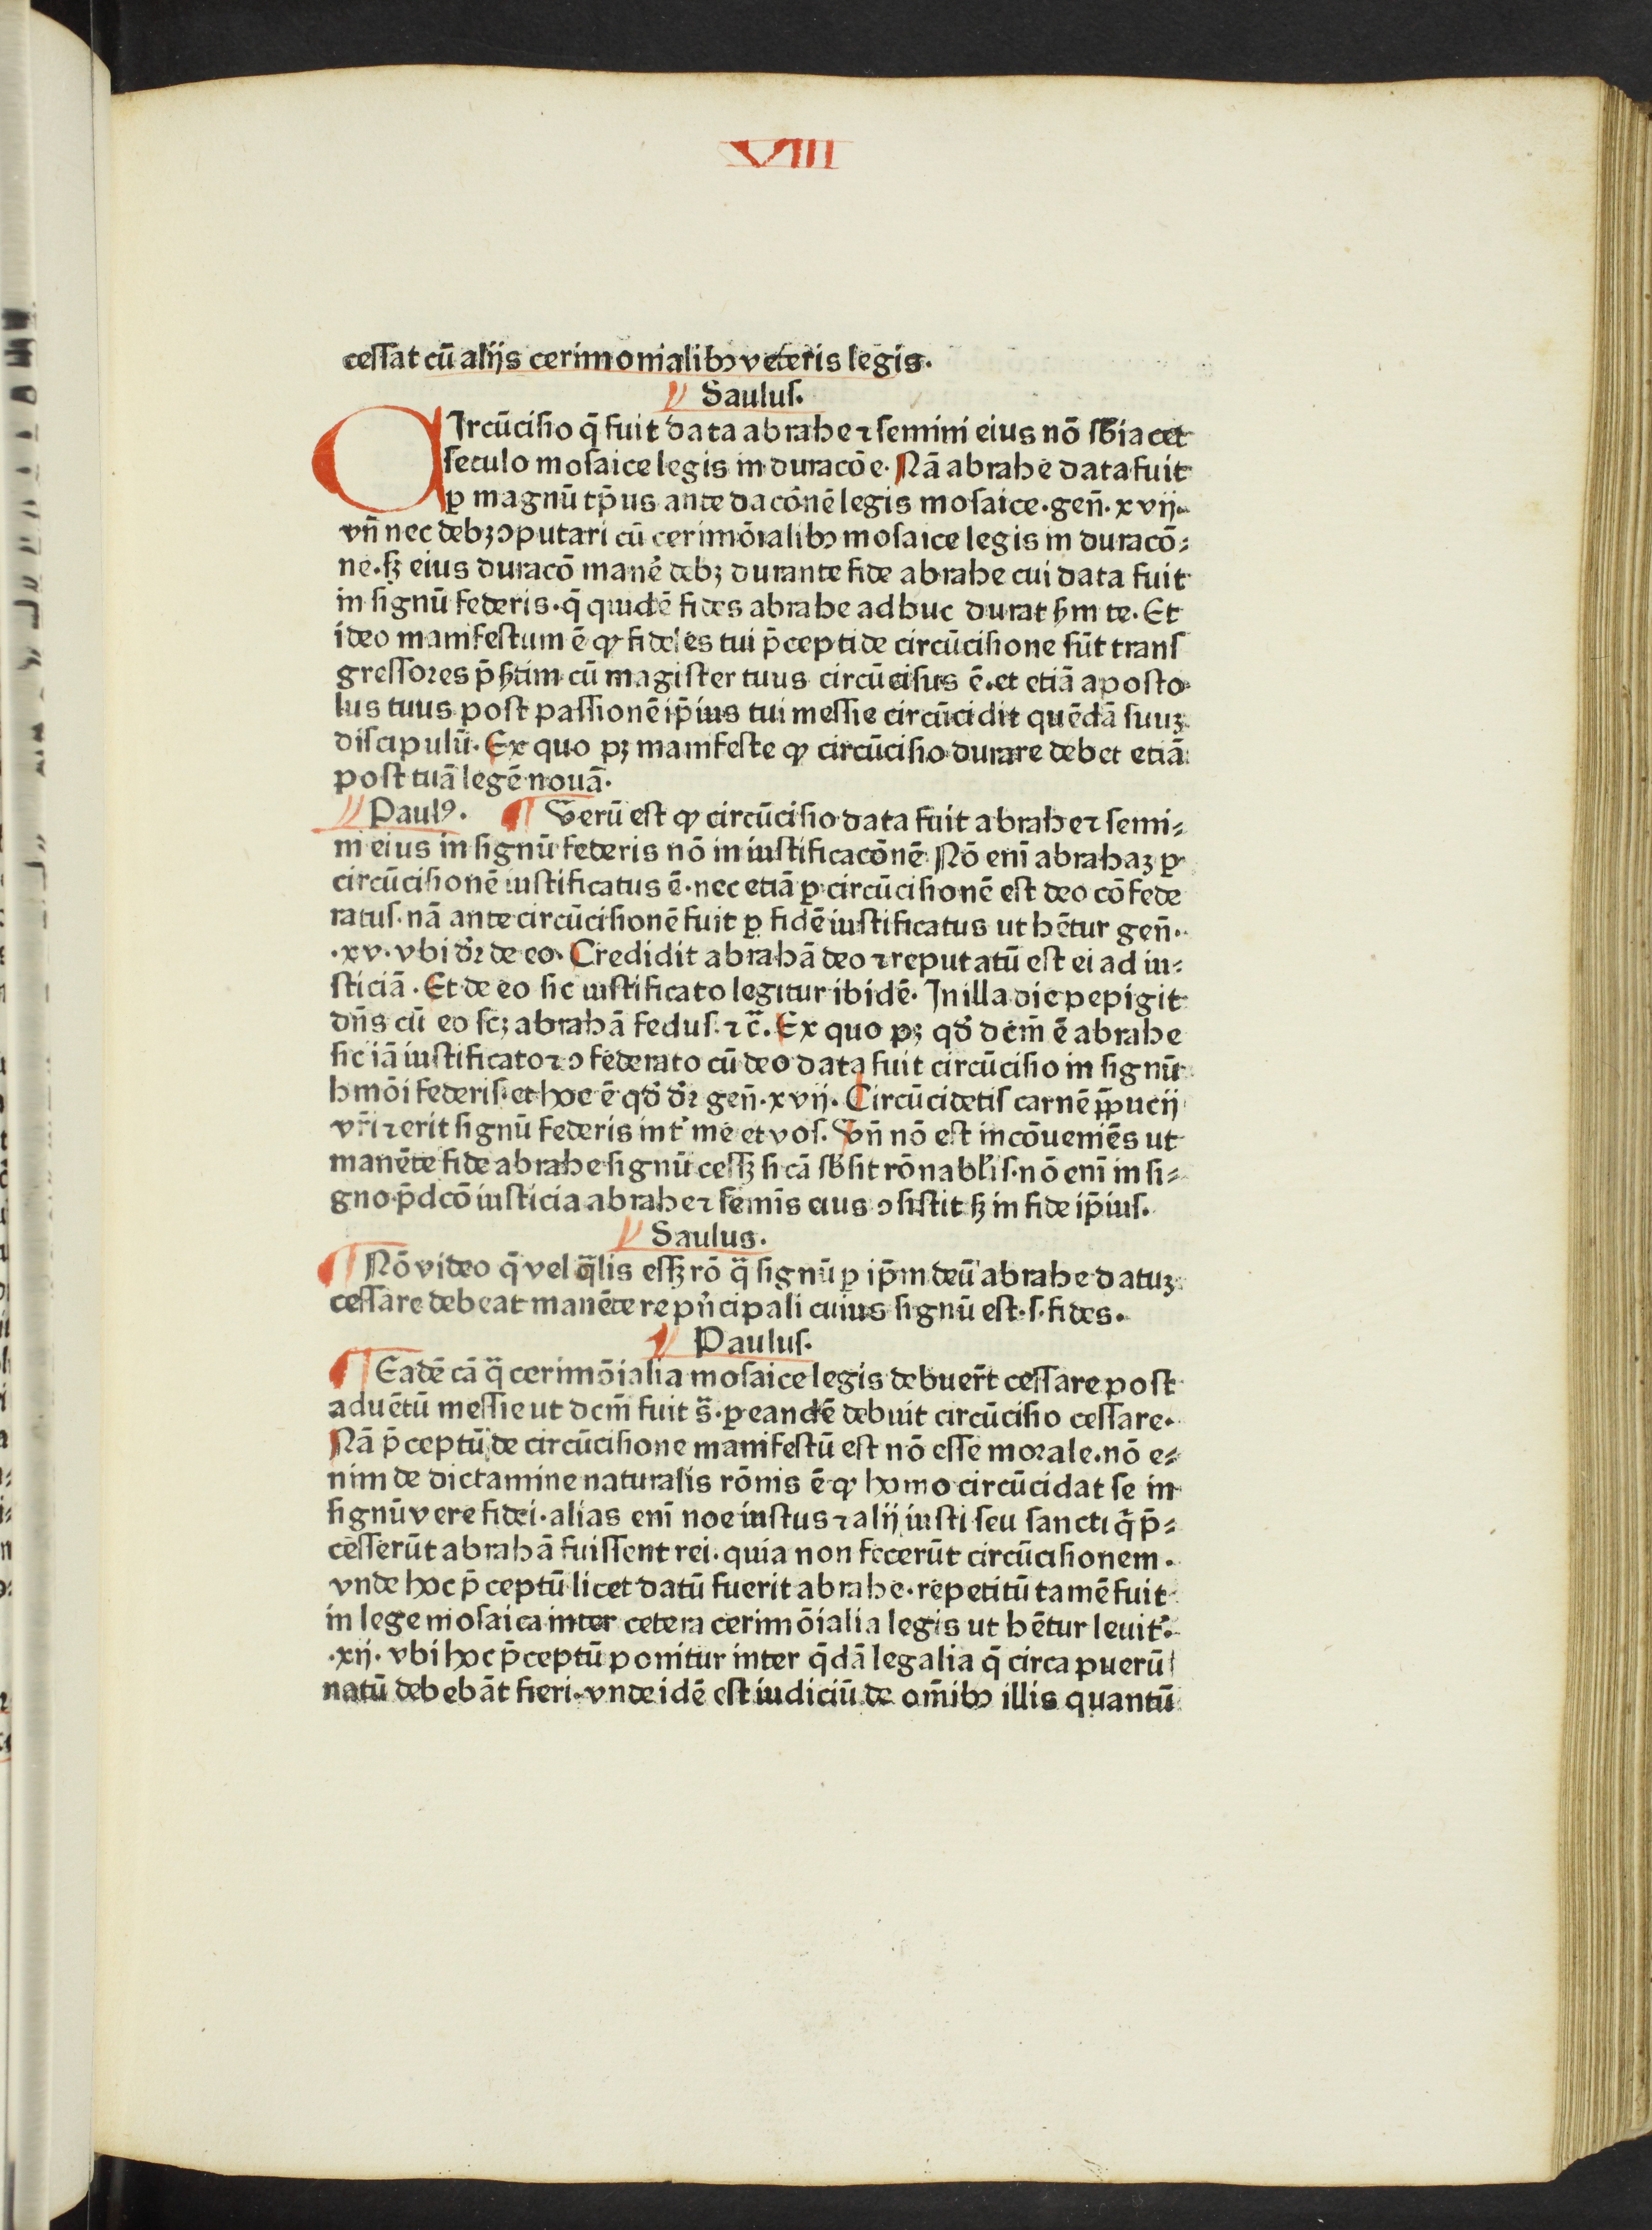 VIII
cessat cū alijs cerimonialibꝫ veteris legis.
Saulus.
CIrcūcisio q̄ fuit data abrahe ⁊ semini eius nō sb̄iacet
seculo mosaice legis in duracōe. Nā abrahe data fuit
ꝑ magnū tp̄us ante dacōnē legis mosaice. gen̄. xvij.
vn̄ nec debꝫ ↄputari cū cerimōialibꝫ mosaice legis in duracō⸗
ne. sꝫ eius duracō manē debꝫ durante fide abrahe cui data fuit
in signū federis. q̄ quidē fides abrahe adhuc durat ẜm te. Et
ideo manifestum ē ꝙ fideles tui p̄cepti de circūcisione sūt trans
gressores p̄sertim cū magister tuus circūcisus ē. et etiā aposto
lus tuus post passionē ip̄ius tui messie circūcidit quēdā suuꝫ
discipulū. Ex quo pꝫ manifeste ꝙ circūcisio durare debet etiā
post tuā legē nouā.
Paulꝰ. Verū est ꝙ circūcisio data fuit abrahe ⁊ semi⸗
ni eius in signū federis nō in iustificacōnē. Nō enī abrahaꝫ ꝑ
circūcisionē iustificatus ē. nec etiā ꝑ circūcisionē est deo cōfede
ratus. nā ante circūcisionē fuit ꝑ fidē iustificatus ut hētur gen̄.
.xv. vbi dr̄ de eo. Credidit abrahā deo ⁊ reputatū est ei ad iu⸗
sticiā. Et de eo sic iustificato legitur ibidē. In illa die pepigit
dn̄s cū eo scꝫ abrahā fedus. ⁊ c̄. Ex quo pꝫ qd̄ dcm̄ ē abrahe
sic iā iustificato ⁊ ↄfederato cū deo data fuit circūcisio in signū
hmōi federis. et hoc ē qd̄ dr̄ gen̄. xvij. Circūcidetis carnē p̄pucij
vr̄i ⁊ erit signū federis int̛ me et vos. Vn̄ nō est incōueniēs ut
manēte fide abrahe signū cessꝫ si cā sb̄sit rōnabl̛is. nō enī in si⸗
gno p̄dcō iusticia abrahe ⁊ semīs eius ↄsistit sꝫ in fide ip̄ius.
Saulus.
Nō video q̄ vel q̄lis essꝫ rō q̄ signū ꝑ ip̄m deū abrahe datuꝫ
cessare debeat manēte re pn̄cipali cuius signū est. s. fides.
Paulus.
Eadē cā q̄ cerimōialia mosaice legis debuer̄t cessare post
aduētū messie ut dcm̄ fuit s̄. ꝑ eandē debuit circūcisio cessare.
Nā p̄ceptū de circūcisione manifestū est nō esse morale. nō e⸗
nim de dictamine naturalis rōnis ē ꝙ homo circūcidat se in
signū vere fidei. alias enī noe iustus ⁊ alij iusti seu sancti q̄ p̄⸗
cesserūt abrahā fuissent rei. quia non fecerūt circūcisionem.
vnde hoc p̄ceptū licet datū fuerit abrahe. repetitū tamē fuit
in lege mosaica inter cetera cerimōialia legis ut hētur leuit̛.
.xij. vbi hoc p̄ceptū ponitur inter q̄dā legalia q̄ circa puerū
natū debebāt fieri. vnde idē est iudiciū de om̄ibꝫ illis quantū